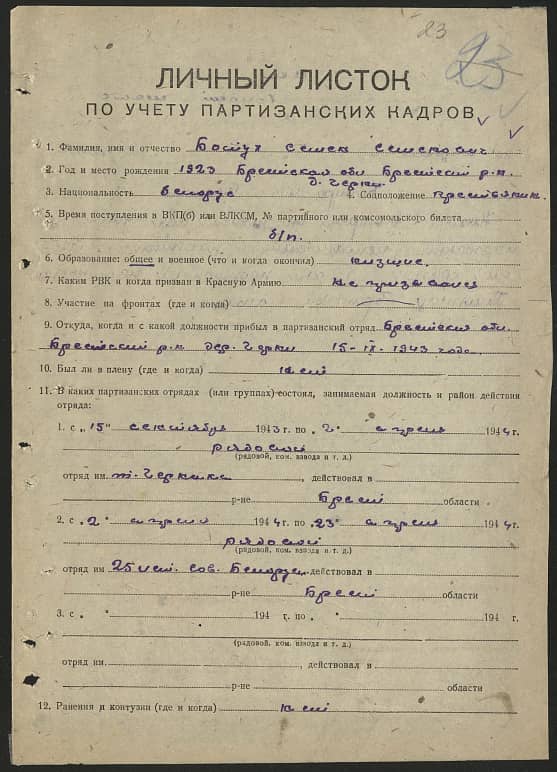 23
23
ЛИЧНЫЙ ЛИСТОК
ПО УЧЕТУ ПАРТИЗАНСКИХ КАДРОВ
1. Фамилия, имя и отчество Семен Семенович
2. Год и место рождения 1923 Брестская обл Брестский р-н.
д. Черни
3. Национальность белорус 4. Соцположение крестьянин
5. Время поступления в ВКП(б) или ВЛКСМ, № партийного или комсомольского билета
б/п.
6. Образование: общее и военное (что и когда окончил) низшие.
7. Каким РВК и когда призван в Красную Армию Не призывался
8. Участие на фронтах (где и когда)
9. Откуда, когда и с какой должности прибыл в партизанский отряд Брестская обл.
Брестский р-н дер. Черни 15-IX-1943 года.
10. Был ли в плену (где и когда) нет
11. В каких партизанских отрядах (или группах) состоял, занимаемая должность и район действия
отряда:
1. с „15" сентября 1943 г. по „2" апреля 1944 г.
рядовой
(рядовой, ком. взвода и т. д.)
отряд им. т. Чернака, действовал в
р-не Брест области
2. с „2" апреля 1944 г. по „23" апреля 1944 г.
рядовой
(рядовой, ком. взвода и т. д.)
отряд им 25 лет. Сов. Белорус. действовал в
р-не Брест области
3. с „ " 194 г. по „ " 194 г.
(рядовой, ком. взвода и т. д.)
отряд им. , действовал в
р-не области
12. Ранения и контузии (где и когда) нет